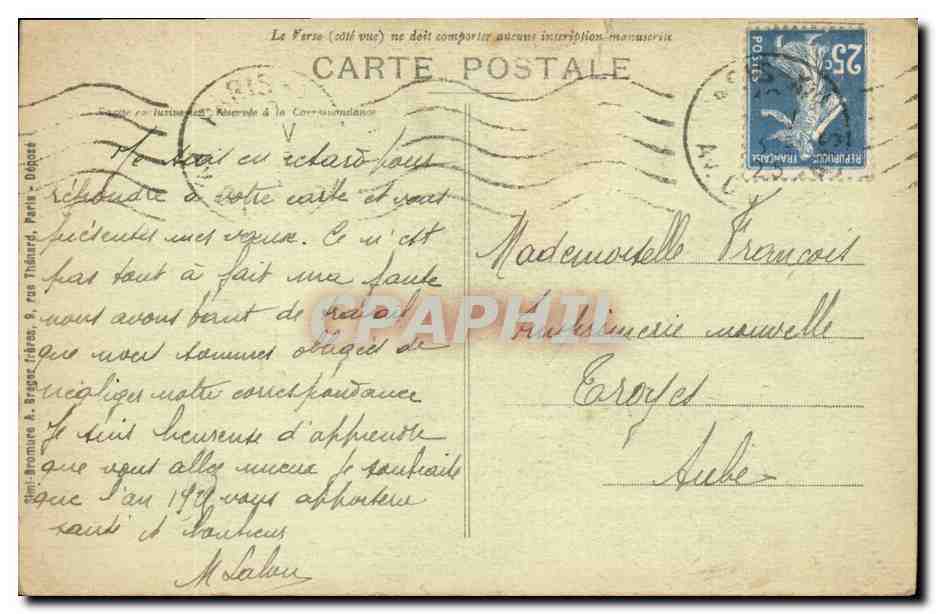 Le Verso (côté vue) ne doit comporter aucune inscription manuscrite
CARTE POSTALE
réservée à la Correspondance
25c
POSTES
REPUBLIQUE FRANÇAISE
PARIS
V
Simi-Bromure A. Breger frères, 9, rue Thénard, Paris - Déposé
Je suis en retard pour
répondre à votre carte et vous
présenter mes vœux. Ce n'est
pas tout à fait ma faute
nous avons tant de travail
que nous sommes obligées de
négliger notre correspondance
Je suis heureuse d'apprendre
que vous allez mieux Je souhaite
que l'an vous apportera
santé et bonheur
M Lalou
Mademoiselle François
nouvelle
Troyes
Aube
CPAPHIL